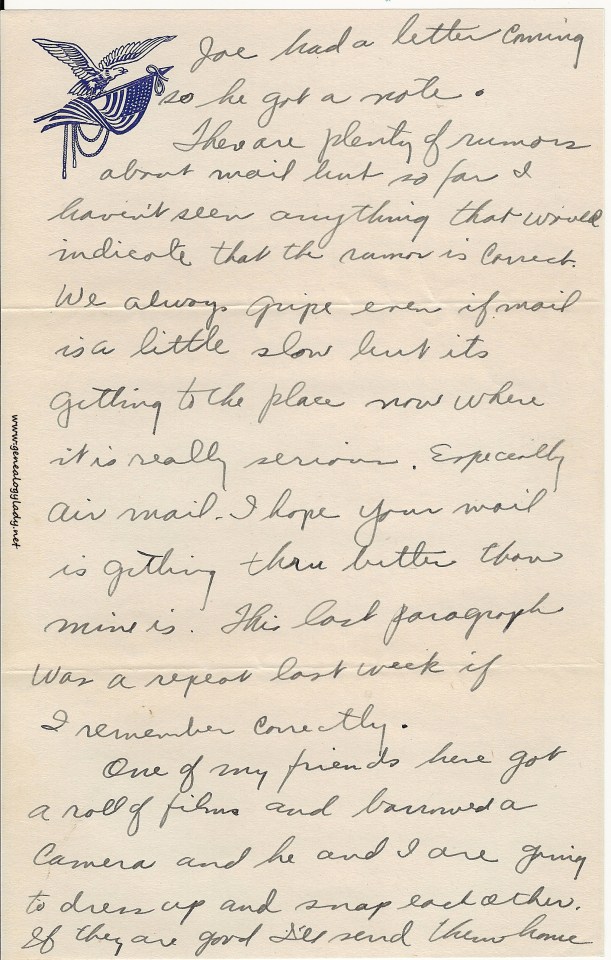 Joe had a letter coming
so he got a note.
There are plenty of rumors
about mail but so far I
haven't seen anything that would
indicate that the rumor is correct.
We always gripe even if mail
is a little slow but its
getting to the place now where
it is really serious. Especially
air mail. I hope your mail
is getting thru better than
mine is. This last paragraph
was a repeat last week if
I remember correctly.
One of my friends here got
a roll of films and borrowed a
camera and he and I are going
to dress up and snap each other.
If they are good I'll send them home
www.genealogylady.net